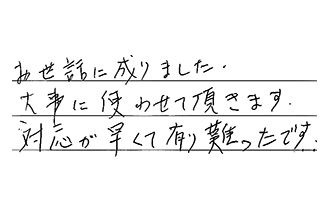 お世話に成りました.
大事に使わせて頂きます.
対応が早くて有り難ったです.